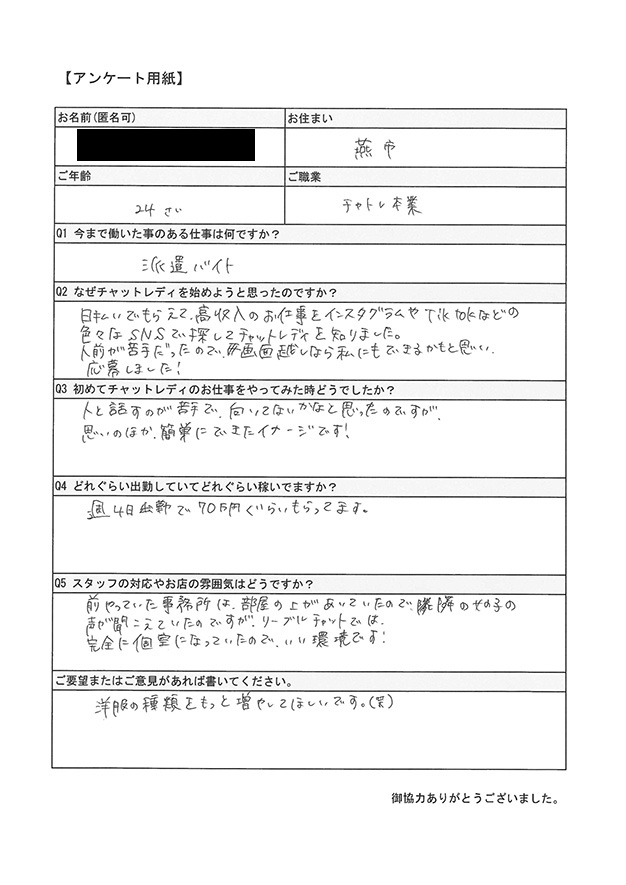 【アンケート用紙】
お名前(匿名可)
お住まい
燕市
ご年齢
ご職業
24さい
チャトレ本業
Q1 今まで働いた事のある仕事は何ですか?
派遣バイト
Q2 なぜチャットレディを始めようと思ったのですか?
日払いでもらえて、高収入のお仕事をインスタグラムやTikTokなどの
色々なSNSで探してチャットレディを知りました。
人前が苦手だったので、画面越しなら私にもできるかもと思い、
応募しました!
Q3 初めてチャットレディのお仕事をやってみた時どうでしたか?
人と話すのが苦手で、向いてないかなと思ったのですが、
思いのほか、簡単にできたイメージです!
Q4 どれぐらい出勤していてどれぐらい稼いでますか?
週4日出勤で70万円ぐらいもらってます。
Q5 スタッフの対応やお店の雰囲気はどうですか?
前やっていた事務所は、部屋の上があいていたので、隣のその子の
声が聞こえていたのですが、リーブルチャットでは、
完全に個室になっていたので、いい環境です!
ご要望またはご意見があれば書いてください。
洋服の種類をもっと増やしてほしいです。(笑)
御協力ありがとうございました。